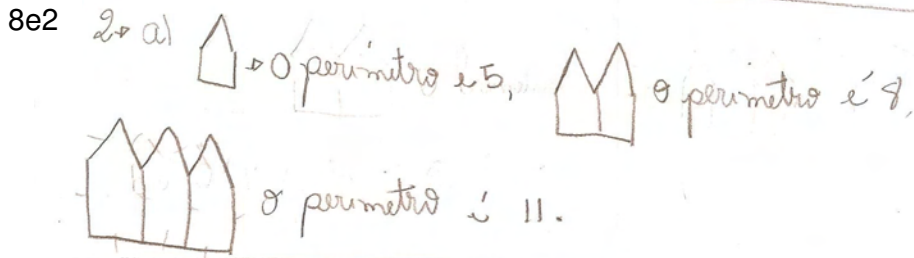 8e2
2→ a) → O perímetro e 5, O perimetro é 8,
O perimetro é 11.